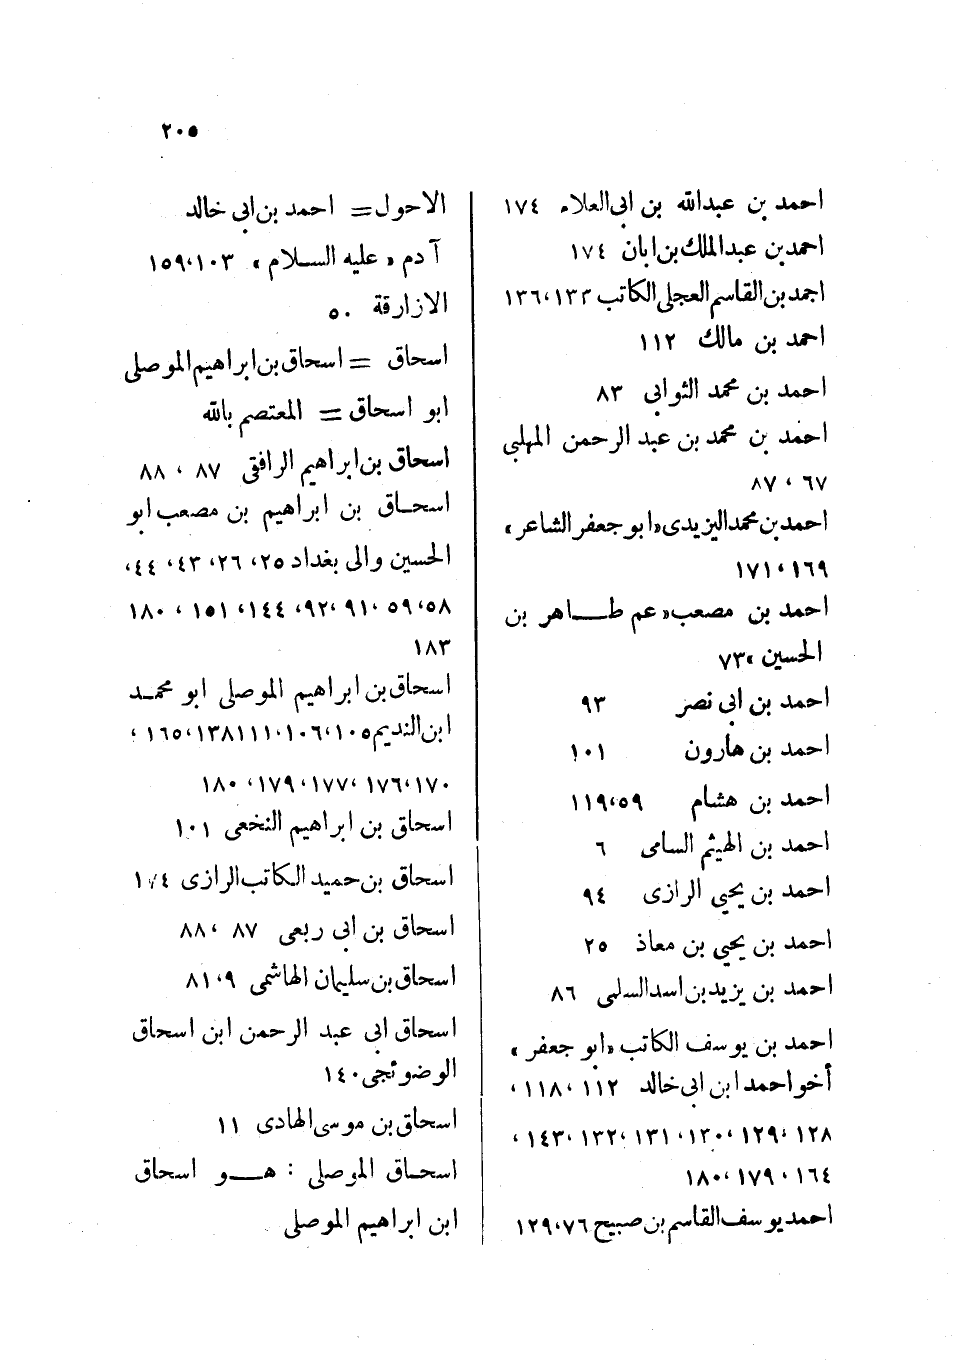 ٢٠٥
احمد بن عبدالله بن ابى العلاء ١٧٤
احمد بن عبد الملك بن ابان ١٧٤
احمد بن القاسم العجلى الكاتب ١٣٣، ١٣٦
احمد بن مالك ١١٢
احمد بن محمد الثوابى ٨٣
احمد بن محمد بن عبد الرحمن المهلبى
٦٧ ، ٨٧
احمد بن محمد اليزيدى «ابو جعفر الشاعر»
١٦٩، ١٧١
احمد بن مصعب «عم طـــاهر بن
الحسين» ٧٣
احمد بن ابى نصر ٩٣
احمد بن هارون ١٠١
احمد بن هشام ٥٩، ١١٩
احمد بن الهيثم السامى ٦
احمد بن يحيى الرازى ٩٤
احمد بن يحيى بن معاذ ٢٥
احمد بن يزيد بن اسد السلمى ٨٦
احمد بن يوسف الكاتب «ابو جعفر»
أخو احمد ابن ابى خالد ١١٢ ، ١١٨ ،
١٢٨ ، ١٢٩ ، ١٣٠ ، ١٣١ ، ١٣٢ ، ١٤٣ ،
١٦٤ ، ١٧٩ ، ١٨٠
احمد يوسف القاسم بن صبيح ٧٦، ١٢٩
الاحول = احمد بن ابى خالد
آدم «عليه السـلام» ١٠٣، ١٥٩
الازارقة ٥٠
اسحاق = اسحاق بن ابراهيم الموصلى
ابو اسحاق = المعتصم بالله
اسحاق بن ابراهيم الرافقى ٨٧ ، ٨٨
اسحـاق بن ابراهيم بن مصعب ابو
الحسين والى بغداد ٢٥، ٢٦، ٤٣، ٤٤،
٥٨، ٥٩، ٩١، ٩٢، ١٤٤، ١٥١ ، ١٨٠
١٨٣
اسحاق بن ابراهيم الموصلى ابو محمـد
ابن النديم ١٠٥، ١٠٦، ١١١، ١٣٨، ١٦٥ ،
١٧٠، ١٧٦، ١٧٧، ١٧٩، ١٨٠
اسحاق بن ابراهيم النخعى ١٠١
اسحاق بن حميد الكاتب الرازى ١٧٤
اسحاق بن ابى ربعى ٨٧ ، ٨٨
اسحاق بن سليمان الهاشمى ٩، ٨١
اسحاق ابى عبد الرحمن ابن اسحاق
الوضوئجى ١٤٠
اسحاق بن موسى الهادى ١١
اسحـاق الموصلى : هـــو اسحاق
ابن ابراهيم الموصلى